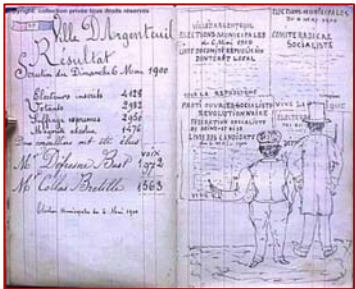 Copyright collection privée tous droits réservés
Ville D'Argenteuil
Résultat
Scrutin du Dimanche 6 Mai 1900
Electeurs inscrits 4128
Votants
Suffrages exprimés 2950
Majorité absolue 1476
ont été élus
voix
Mr Defresne Bast 1972
Mr Collas Bretille 1563
Election Municipales du 6 Mai 1900
VILLE D'ARGENTEUIL
ELECTIONS MUNICIPALES
du 6 Mai 1900
LISTE DU COMITE REPUBLICAIN
D'INTERET LOCAL
ELECTIONS MUNICIPALES
DU 6 MAI 1900
COMITE RADICAL
SOCIALISTE
VIVE LA REPUBLIQUE
PARTI OUVRIER SOCIALISTE
REVOLUTIONNAIRE
FEDERATION SOCIALISTE
DE SEINE-ET-OISE
LISTE DES CANDIDATS
VIVE LA
ELECTEURS
VIVE